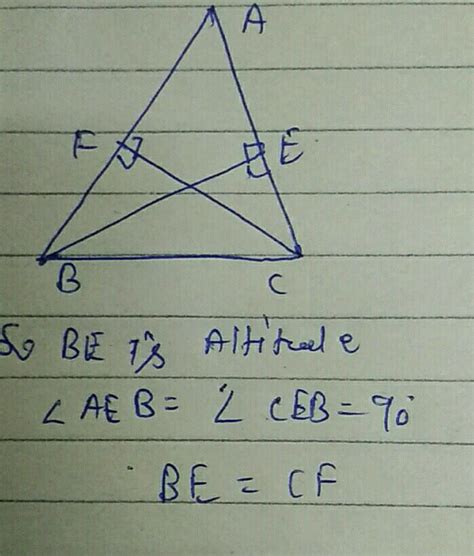 A
F E
B C
So BE is Altitude
∠AEB = ∠CEB = 90°
BE = CF